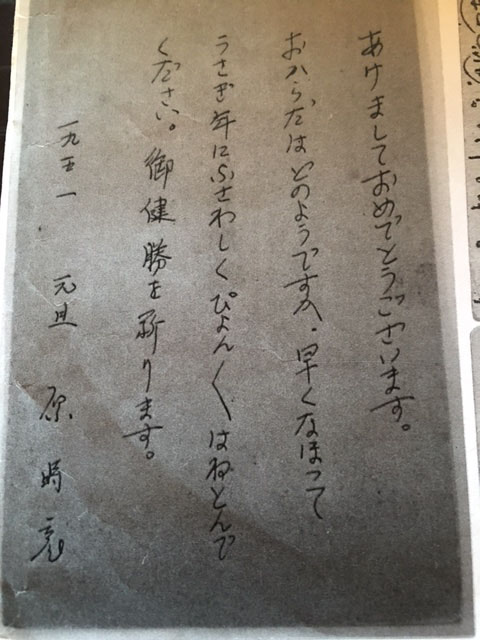 あけましておめでとうございます。
おからだはどのようですか、早くなほって
うさぎ年にふさわしくぴょん〱はねとんで
ください。御健勝を祈ります。
一九五一 元旦 原 時彦